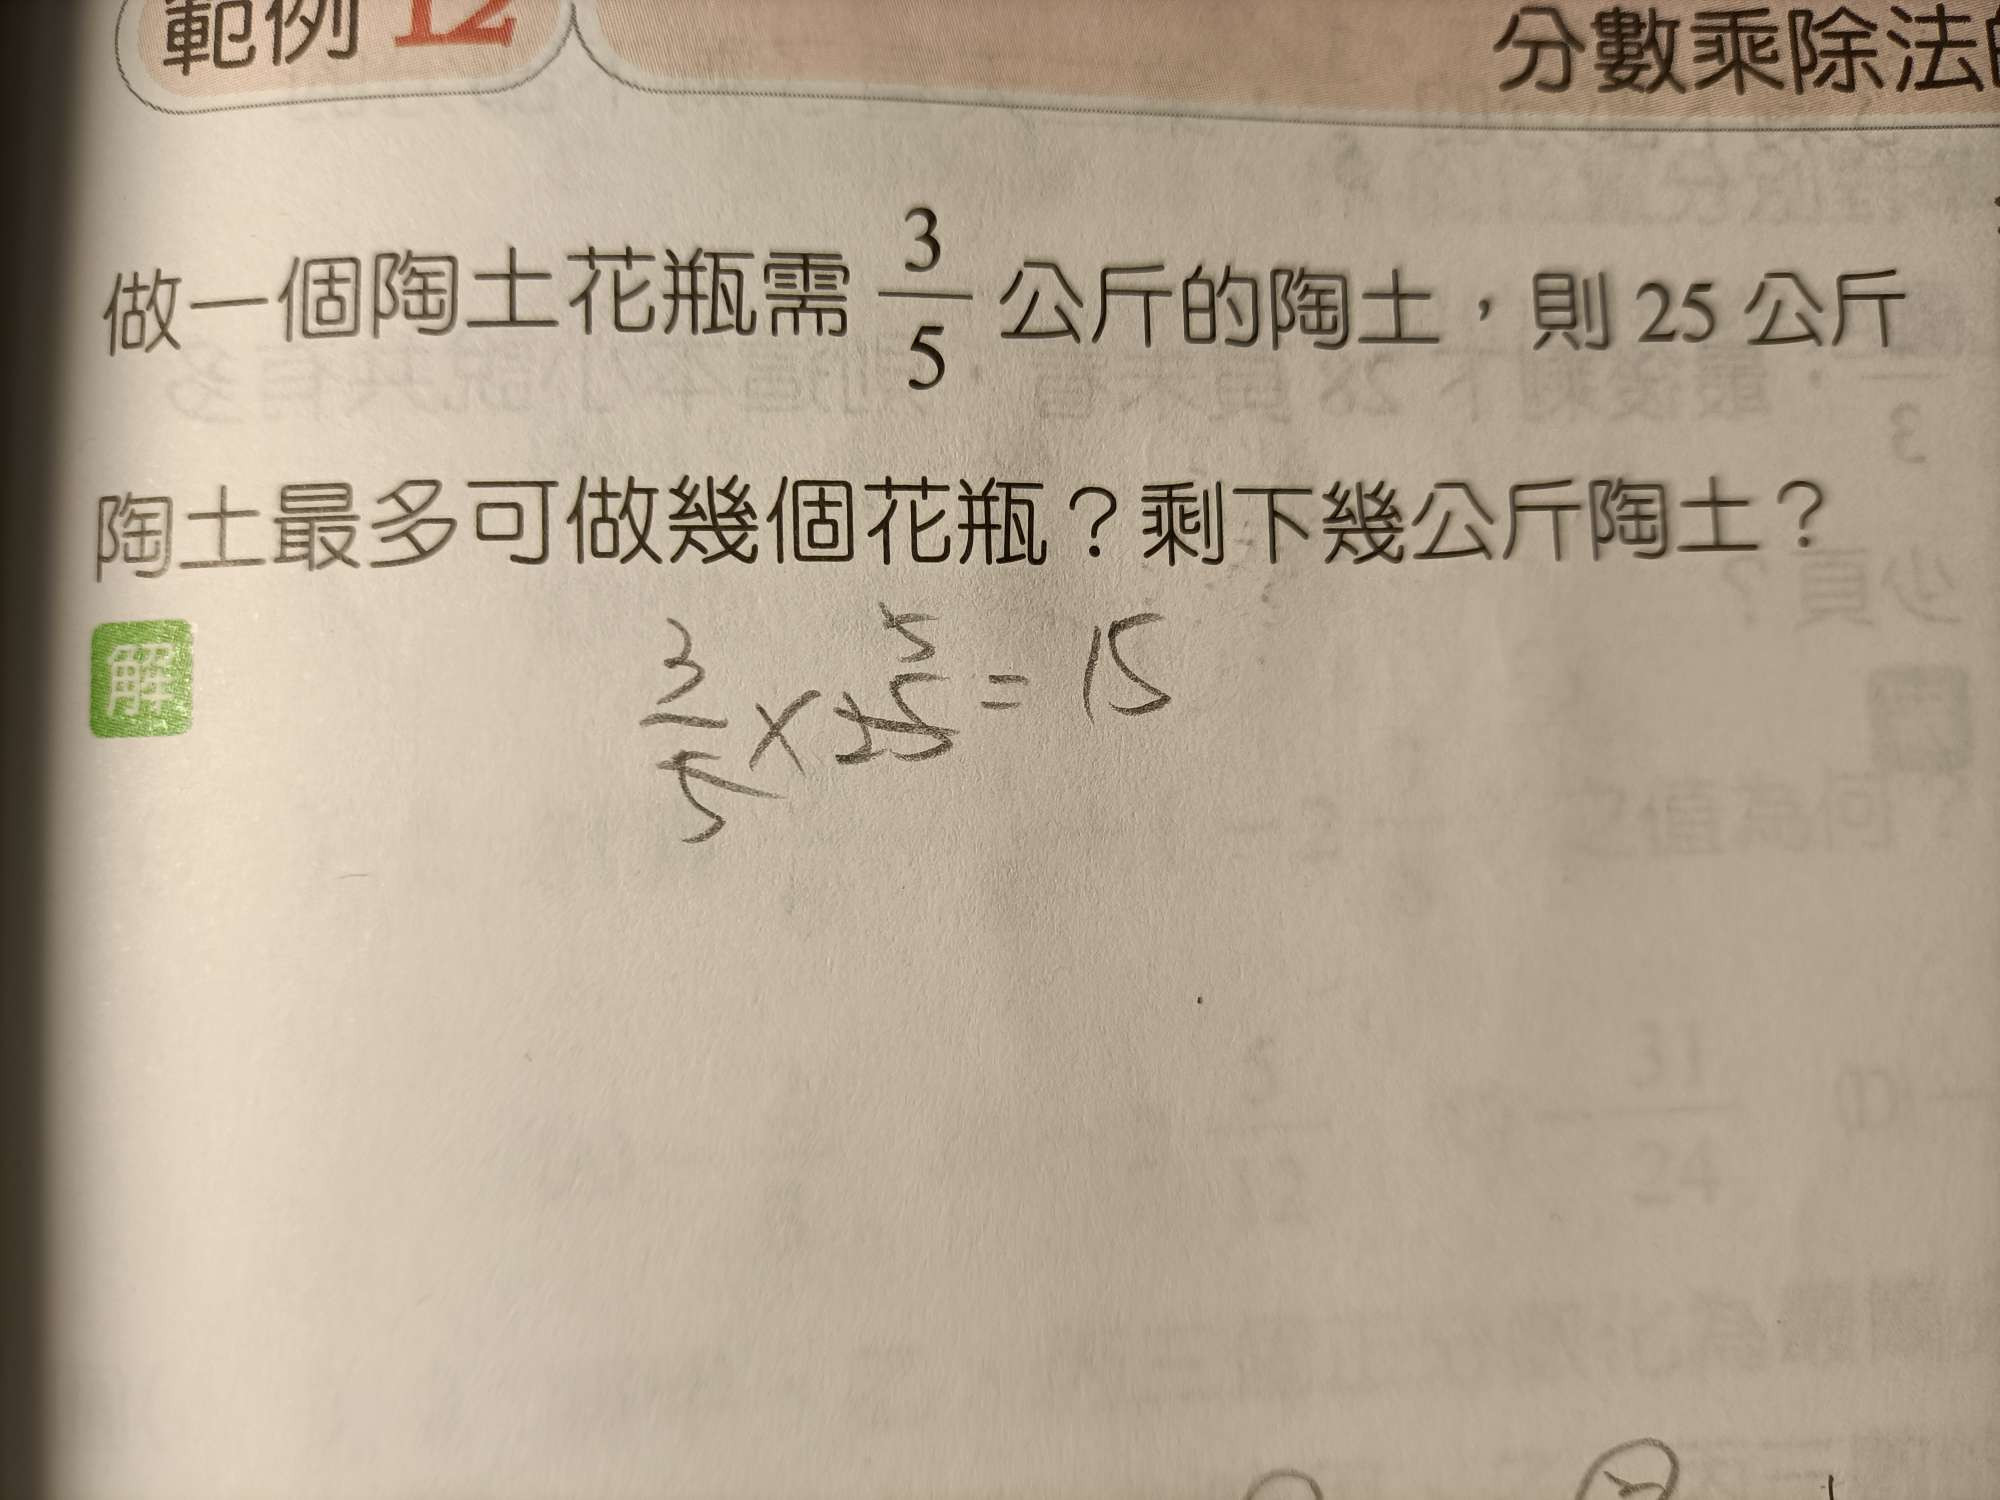 範例 12
分數乘除法的
做一個陶土花瓶需 3/5 公斤的陶土，則 25 公斤
陶土最多可做幾個花瓶？剩下幾公斤陶土？
解
3/5 × 25 = 15
5